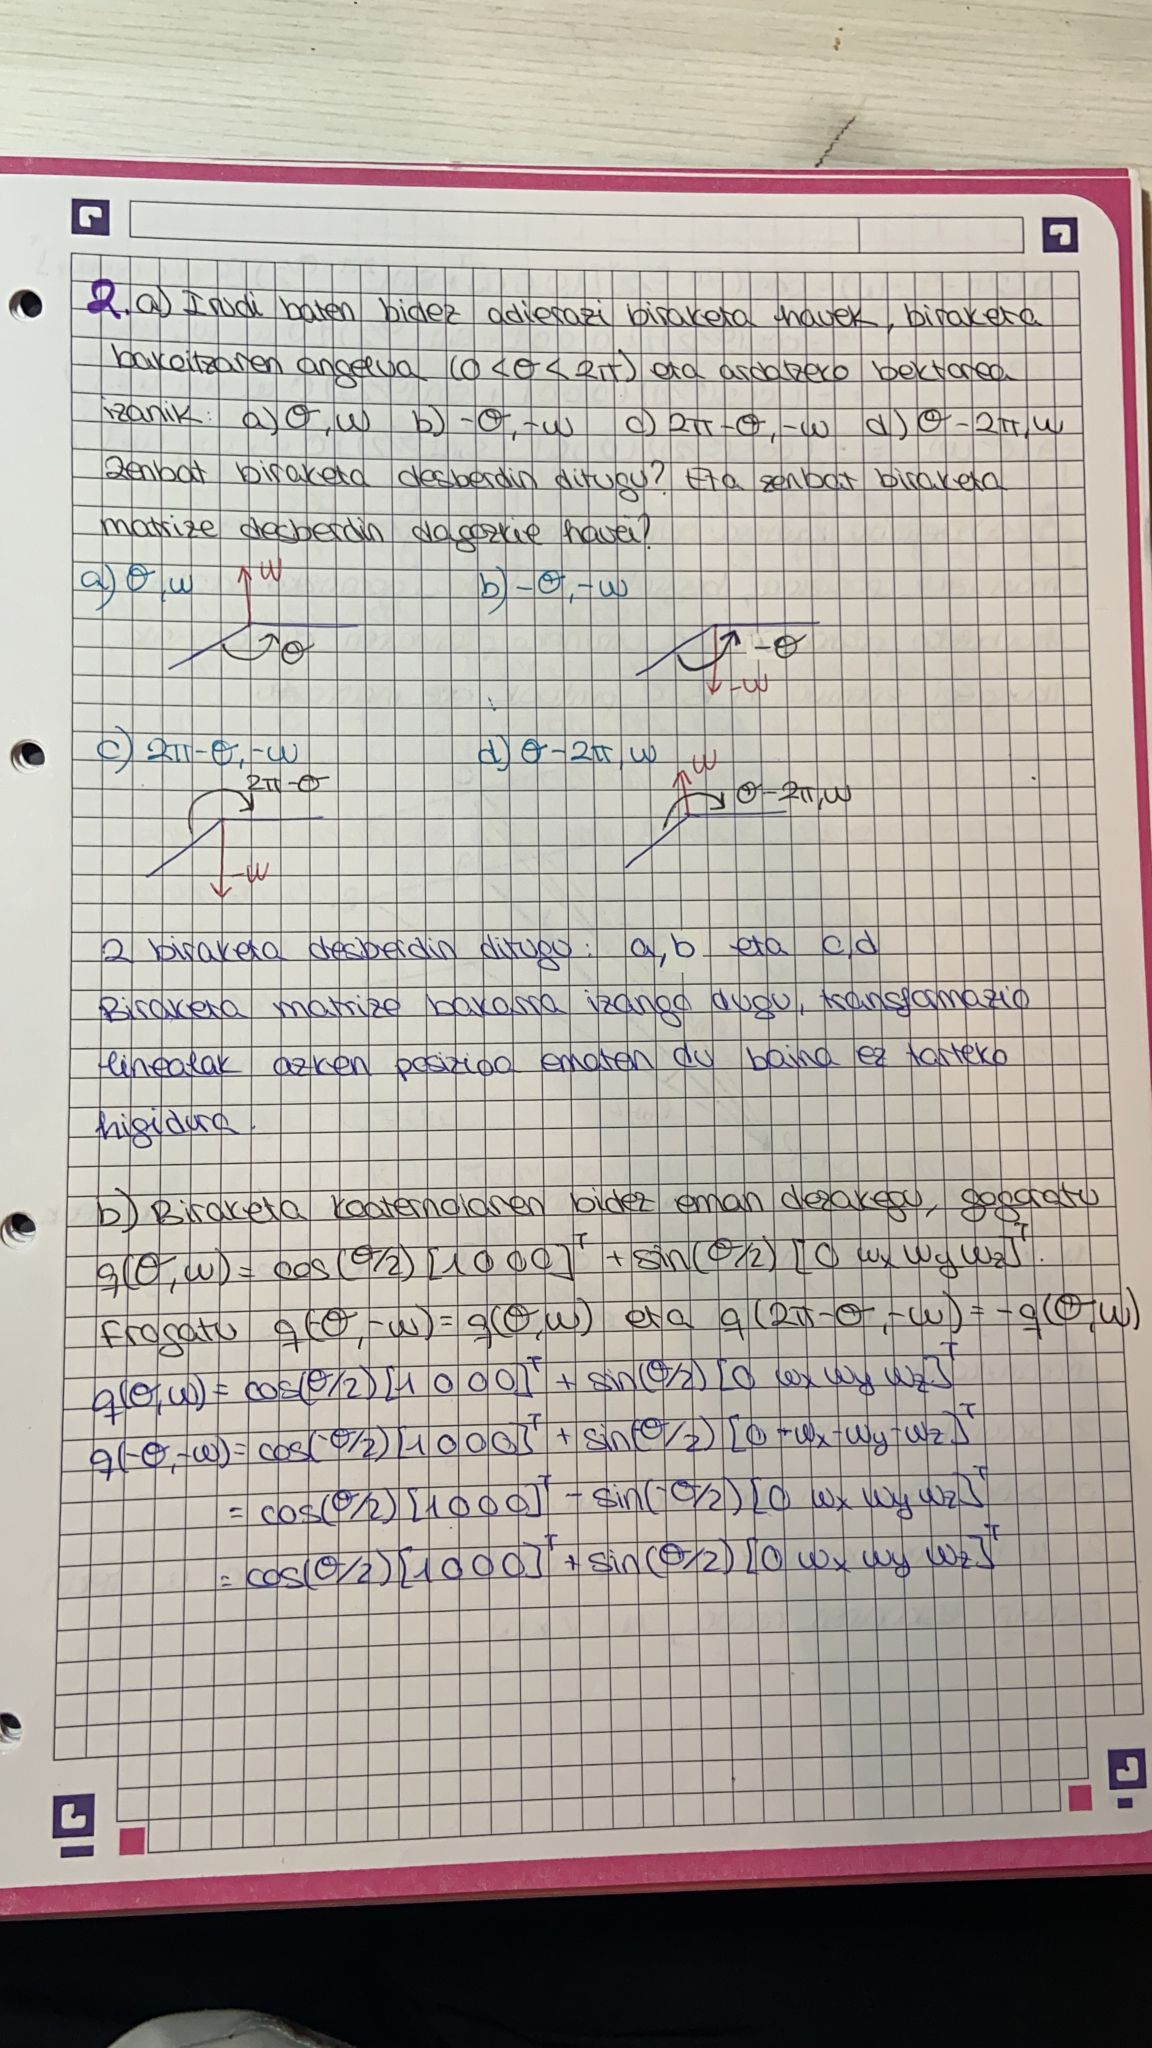 2. a) Irudi baten bidez adierazi biraketa hauek, biraketa
bakoitzaren angelua (0 < θ < 2π) eta ardatzeko bektorea
izanik: a) θ, w b) -θ, -w c) 2π-θ, -w d) θ-2π, w
Zenbat biraketa desberdin ditugu? Eta zenbat biraketa
matrize desberdin dagozkie hauei?
a) θ, w
w
θ
b) -θ, -w
-θ
-w
c) 2π-θ, -w
2π-θ
-w
d) θ-2π, w
w
θ-2π, w
2 biraketa desberdin ditugu: a, b eta c, d
Biraketa matrize bakarra izango dugu, transformazio
linealak azken posizioa ematen du baina ez tarteko
higidura.
b) Biraketa koaternoiaren bidez eman dezakegu, gogoratu
q(θ, w) = cos(θ/2) [1 0 0 0]ᵀ + sin(θ/2) [0 wx wy wz]ᵀ.
Frogatu q(-θ, -w) = q(θ, w) eta q(2π-θ, -w) = -q(θ, w)
q(θ, w) = cos(θ/2) [1 0 0 0]ᵀ + sin(θ/2) [0 wx wy wz]ᵀ
q(-θ, -w) = cos(-θ/2) [1 0 0 0]ᵀ + sin(-θ/2) [0 -wx -wy -wz]ᵀ
= cos(θ/2) [1 0 0 0]ᵀ - sin(-θ/2) [0 wx wy wz]ᵀ
= cos(θ/2) [1 0 0 0]ᵀ + sin(θ/2) [0 wx wy wz]ᵀ